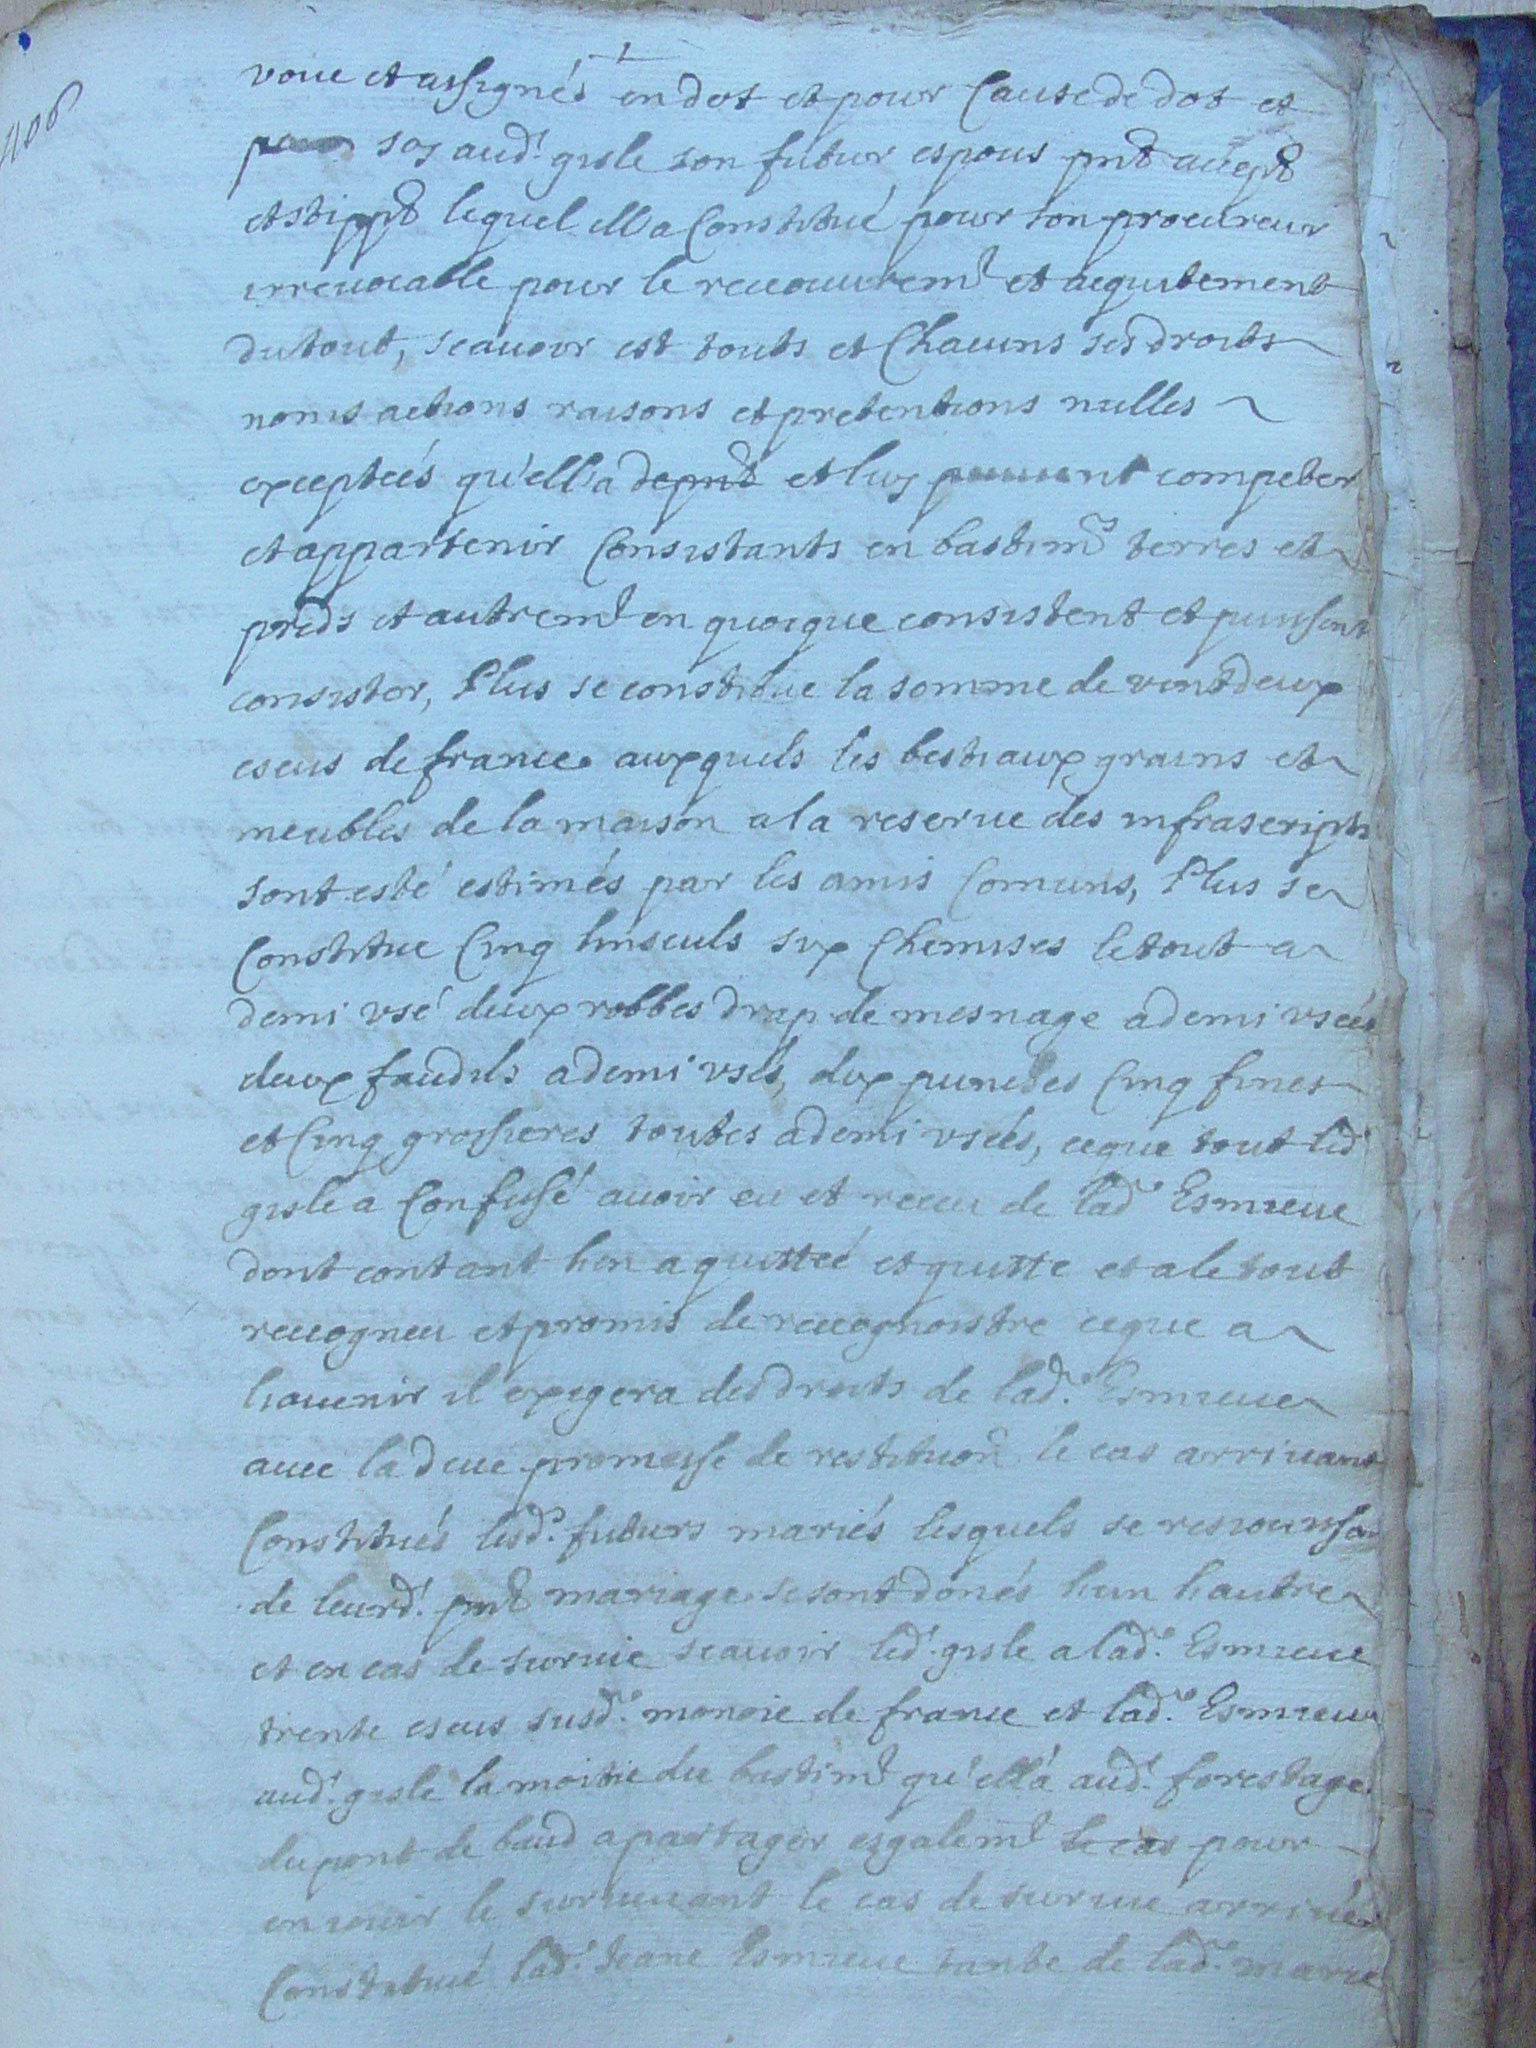 1106
voue et assignés en dot et pour Cause de dot et
soy aud.t gisle son futur espous pnt accept
et stippt lequel ell'a Constitué pour son procureur
irreuocable pour le recouurem.t et acquitement
du tout, scauoir est touts et Chacuns ses droits
noms actions raisons et pretentions nulles
exceptées qu'ell'a depnt et luy peuuent competer
et appartenir Consistants en bastim.ts terres et
preds et autrem.t en quoique consistent et puissent
consister, Plus se constitue la somme de vint deux
escus de france auxquels les bestiaux grains et
meubles de la maison a la reserue des infrascripts
sont esté estimés par les amis Comuns, Plus se
Constitue Cinq linseuls six Chemises le tout a
demi vsé deux robbes drap de mesnage a demi vsées
deux faudils a demi vsés, dix punches Cinq fines
et Cinq grossieres toutes a demi vsées, ceque tout led.t
gisle a Confessé auoir eu et receu de lad.e Esmieue
dont contant l'en a quitteé et quitte et a le tout
recogneu et promis de recognoistre ceque a
l'auenir il exigera des droits de lad.e Esmieue
auec la deue promesse de restituon le cas arriuant
Constitués lesd.s futurs mariés lesquels se resiouissant
de leurd.t pnt mariage se sont donés l'un l'autre
et en cas de suruie scauoir led.t gisle a lad.e Esmieue
trente escus susd.e monoie de france et lad.e Esmieue
aud.t gisle la moitie du bastim.t qu'ell'a aud.t forestage
du pont de baud a partager esgalem.t le cas pour
en iouir le suruiuant le cas de suruie arriué
Constitué lad.e Jeane Esmieue tante de lad.e marie